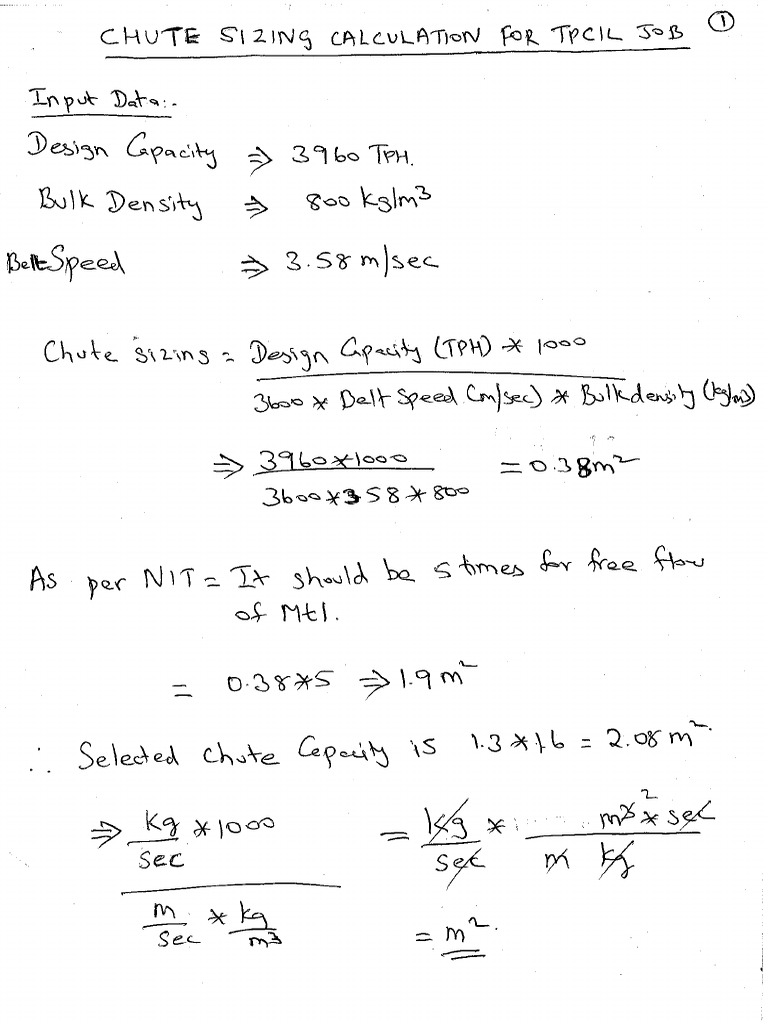 ①
CHUTE SIZING CALCULATION FOR TPCIL JOB
Input Data:-
Design Capacity ⇒ 3960 TPH.
Bulk Density ⇒ 800 kg/m3
Belt Speed ⇒ 3.58 m/sec
Chute sizing = Design Capacity (TPH) * 1000
3600 * Belt Speed (m/sec) * Bulk density (kg/m3)
⇒ 3960*1000 = 0.38m2
3600*3.58*800
As per NIT = It should be 5 times for free flow
of Mtl.
= 0.38*5 ⇒ 1.9 m2
∴ Selected chute Capacity is 1.3 * 1.6 = 2.08 m2.
⇒ Kg * 1000 = Kg * m3 2 * sec
sec sec m kg
m * kg = m2.
sec m3